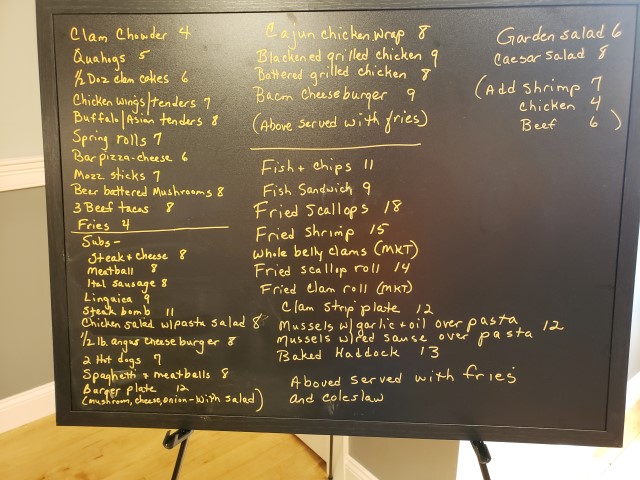 Clam Chowder 4
Quahogs 5
1/2 Doz clam cakes 6
Chicken wings/tenders 7
Buffalo/Asian tenders 8
Spring rolls 7
Bar pizza-cheese 6
Mozz sticks 7
Beer battered Mushrooms 8
3 Beef tacos 8
Fries 4
Subs-
Steak + cheese 8
Meatball 8
Ital sausage 8
Linguica 9
Steak bomb 11
Chicken salad w/pasta salad 8
1/2 lb. angus cheese burger 8
2 Hot dogs 7
Spaghetti + meatballs 8
Burger plate 12
(mushroom, cheese, onion - with salad)
Cajun chicken wrap 8
Blackened grilled chicken 9
Battered grilled chicken 8
Bacon Cheeseburger 9
(Above served with fries)
Fish + chips 11
Fish Sandwich 9
Fried Scallops 18
Fried Shrimp 15
Whole belly clams (MKT)
Fried scallop roll 14
Fried Clam roll (MKT)
Clam Strip plate 12
Mussels w/garlic + oil over pasta 12
Mussels w/red sause over pasta
Baked Haddock 13
Aboved served with fries
and coleslaw
Garden salad 6
Caesar Salad 8
(Add shrimp 7
chicken 4
Beef 6)